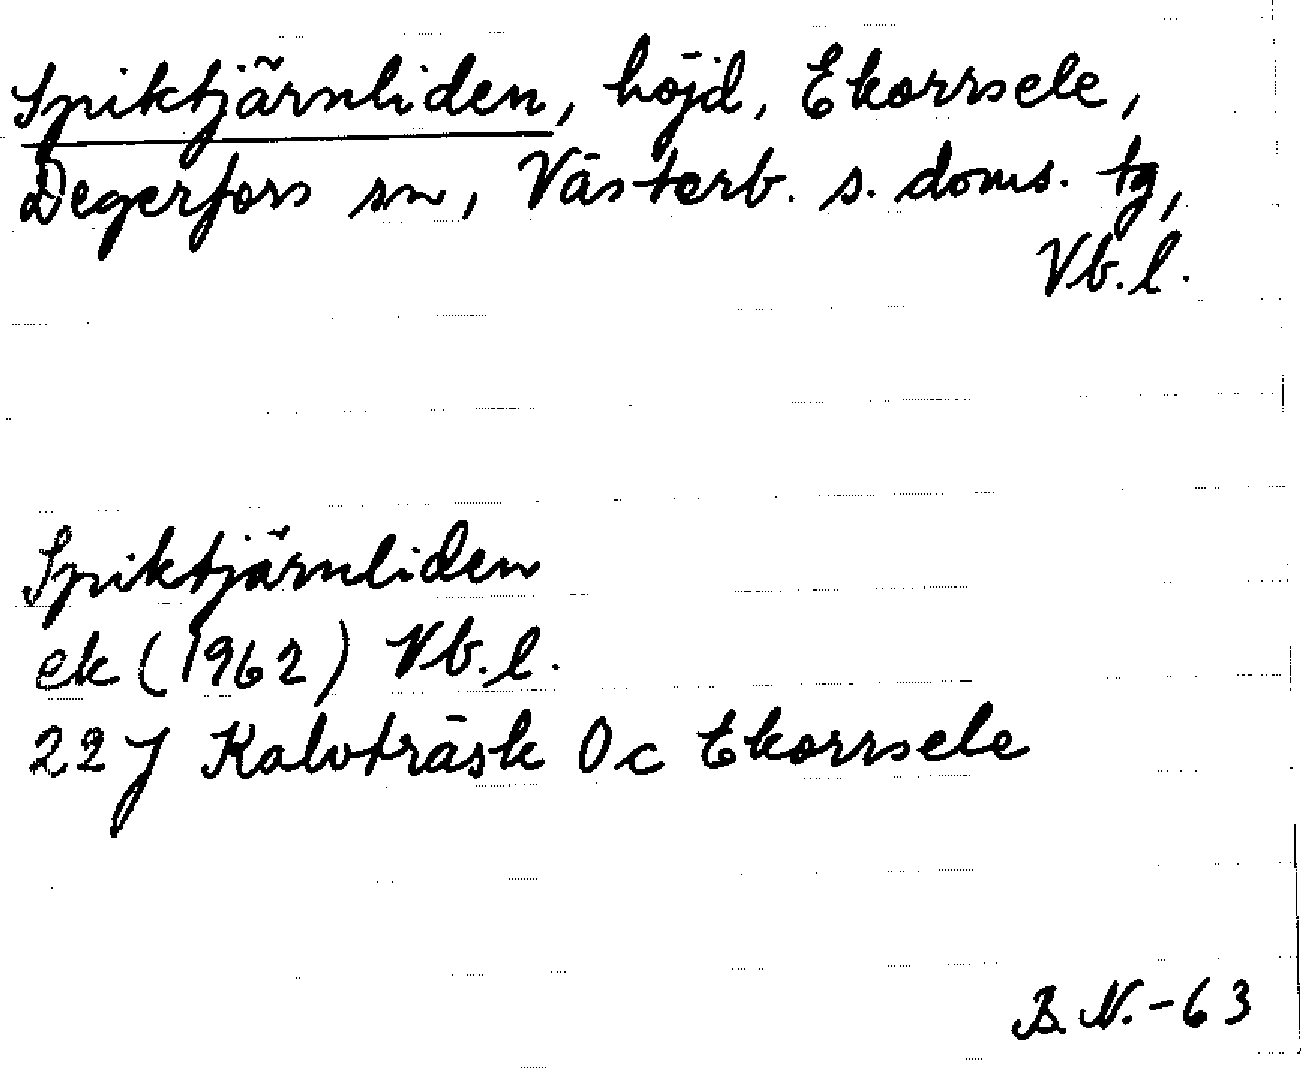 Spiktjärnliden, höjd, Ekorrsele,
Degerfors sn, Västerb. s. doms. tg,
Vb.l.
Spiktjärnliden
ek (1962) Vb.l.
22J Kalvträsk 0c Ekorrsele
B.N.-63